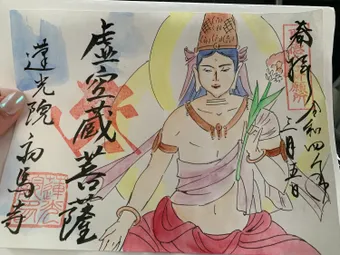 奉拝
令和四年
三月五日
虚空蔵菩薩
蓮光院 初馬寺